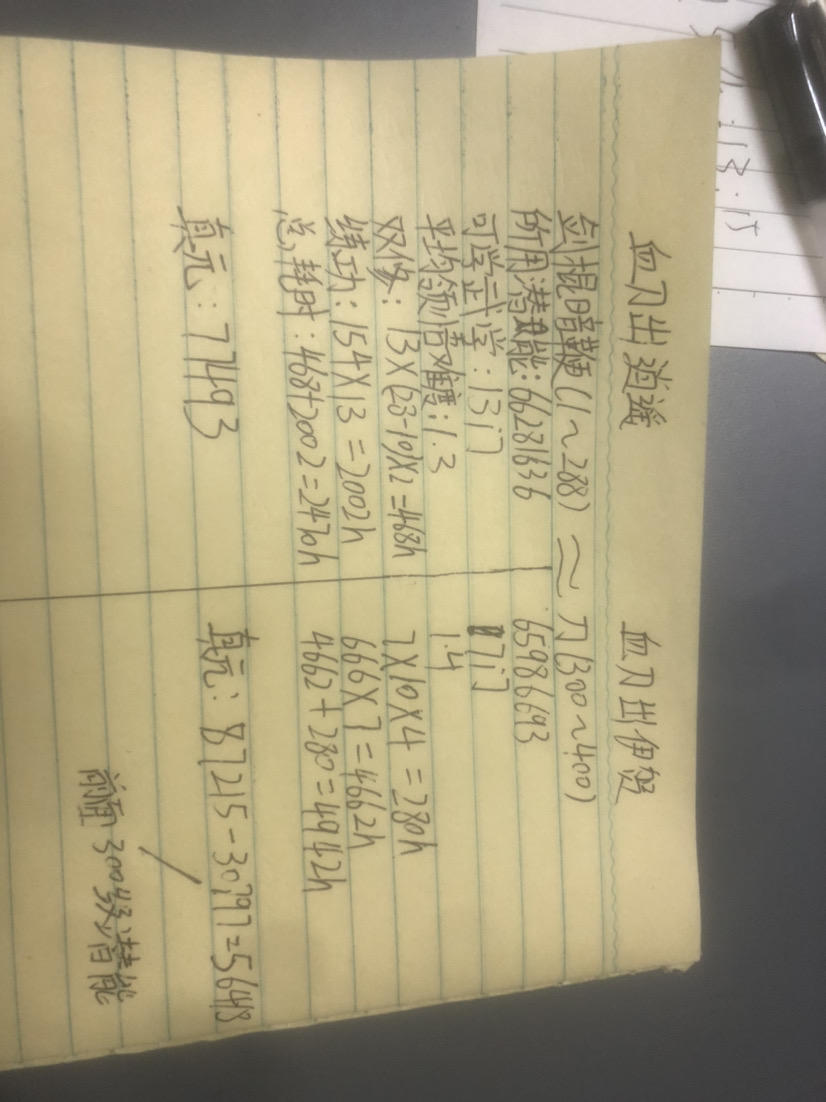 血刀出逍遥 血刀出伊贺
剑棍暗鞭(1~288) ≈ 刀(300~400)
所用潜能:66281636 65986693
可学武学:13门 7门
平均领悟难度:1.3 1.4
双修:13×(28-10)×2=468h 7×10×4=280h
练功:154×13=2002h 666×7=4662h
总耗时:468+2002=2470h 4662+280=4942h
真元:77493 真元:87215-30797=5648
前面300级潜能